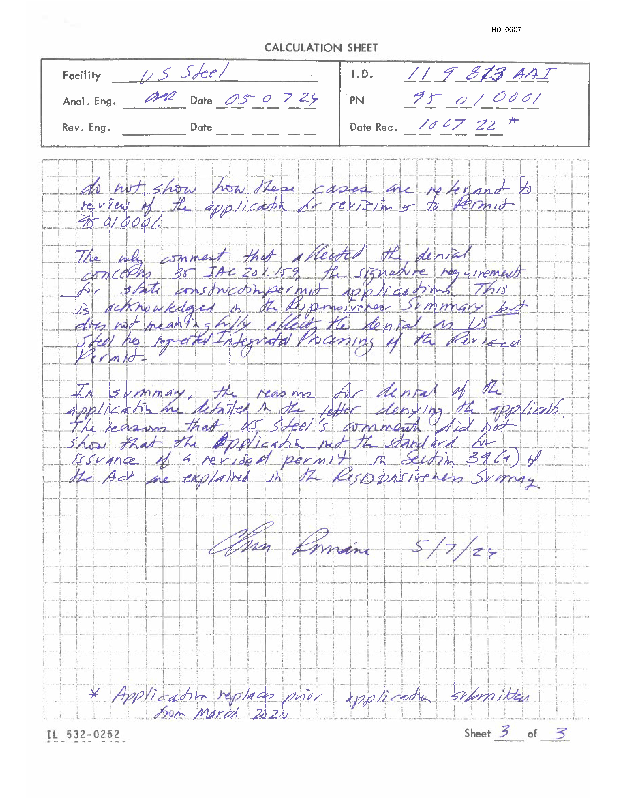 CALCULATION SHEET
Facility US Steel I.D. 119 813 AAI
Anal. Eng. Date 05 07 24 PN 95 01 0001
Rev. Eng. Date Date Rec. 1007 22 *
do not show how these cases are relevant to
review of the application for revision to Permit
95010001.
The only comment that affected the denial
concerns 35 IAC 201.159, the signature requirement
for state construction permit applications. This
is acknowledged in the Responsiveness Summary but
does not meaningfully affect the denial as US
Steel has rejected Integrated Processing of the Revised
Permit.
In summary, the reasons for denial of the
application are detailed in the letter denying the application.
The reasons that US Steel's comments did not
show that the Application met the standard for
issuance of a revised permit in Section 39(a) of
the Act are explained in the Responsiveness Summary
Chris Romaine 5/7/24
* Application replaces prior application submitted
from March
IL 532-0252 Sheet 3 of 3